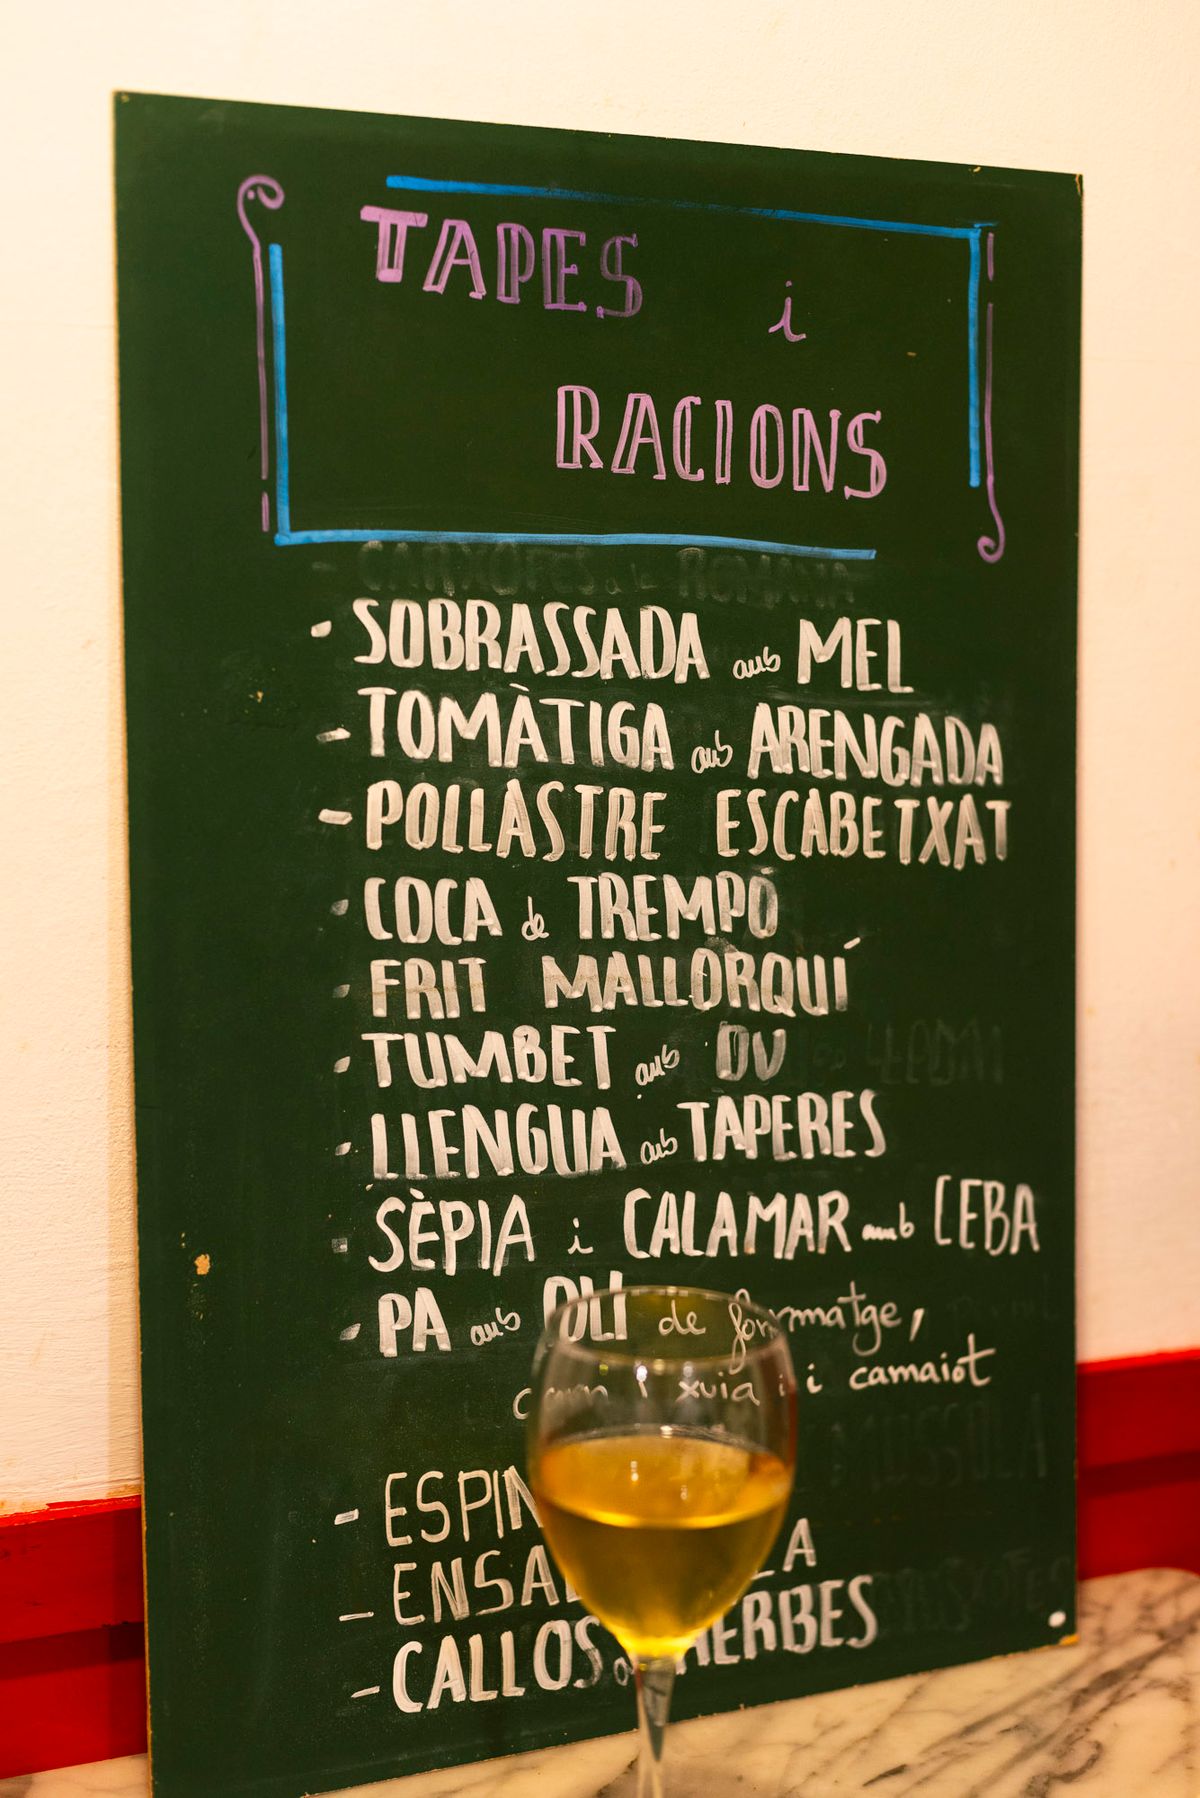 TAPES i
RACIONS
CARXOFES a la ROMANA
- SOBRASSADA amb MEL
- TOMÀTIGA amb ARENGADA
- POLLASTRE ESCABETXAT
- COCA de TREMPÓ
- FRIT MALLORQUÍ
- TUMBET amb OU
- LLENGUA amb TÀPERES
- SÈPIA i CALAMAR amb CEBA
- PA amb OLI de formatge,
xuia i camaiot
-
-
- CALLOS HERBES